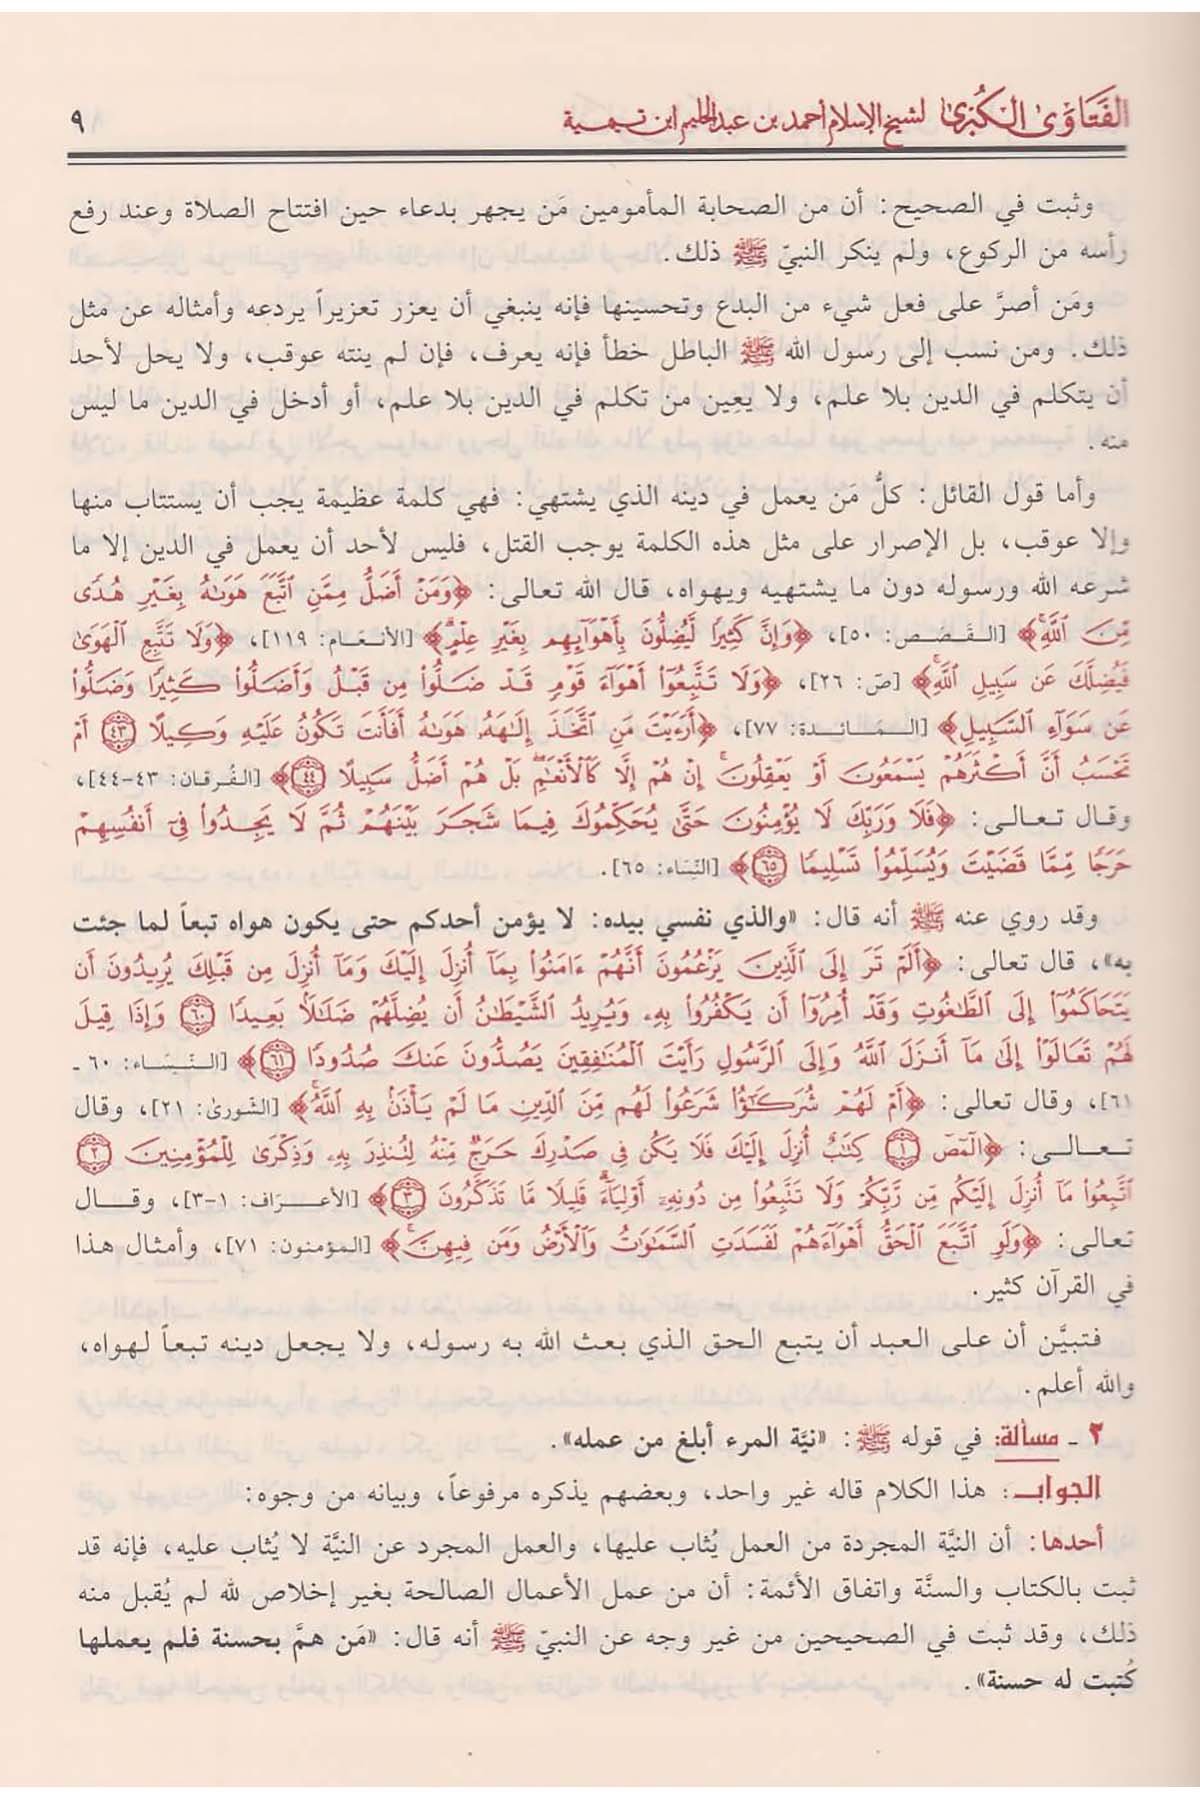 الفتاوى الكبرى لشيخ الإسلام أحمد بن عبد الحليم ابن تيمية ٩
وثبت في الصحيح: أن من الصحابة المأمومين مَن يجهر بدعاء حين افتتاح الصلاة وعند رفع
رأسه من الركوع، ولم ينكر النبيّ ﷺ ذلك.
ومَن أصرَّ على فعل شيء من البدع وتحسينها فإنه ينبغي أن يعزر تعزيراً يردعه وأمثاله عن مثل
ذلك. ومن نسب إلى رسول الله ﷺ الباطل خطأ فإنه يعرف، فإن لم ينته عوقب، ولا يحل لأحد
أن يتكلم في الدين بلا علم، ولا يعِين من تكلم في الدين بلا علم، أو أدخل في الدين ما ليس
منه.
وأما قول القائل: كلُّ مَن يعمل في دينه الذي يشتهي: فهي كلمة عظيمة يجب أن يستتاب منها
وإلا عوقب، بل الإصرار على مثل هذه الكلمة يوجب القتل، فليس لأحد أن يعمل في الدين إلا ما
شرعه الله ورسوله دون ما يشتهيه ويهواه، قال الله تعالى: ﴿وَمَنْ أَضَلُّ مِمَّنِ ٱتَّبَعَ هَوَىٰهُ بِغَيْرِ هُدًى
مِّنَ ٱللَّهِ﴾ [القَصَص: ٥٠]، ﴿وَإِنَّ كَثِيرًا لَّيُضِلُّونَ بِأَهْوَآئِهِم بِغَيْرِ عِلْمٍ﴾ [الأنعَام: ١١٩]، ﴿وَلَا تَتَّبِعِ ٱلْهَوَىٰ
فَيُضِلَّكَ عَن سَبِيلِ ٱللَّهِ﴾ [صَ: ٢٦]، ﴿وَلَا تَتَّبِعُوٓا۟ أَهْوَآءَ قَوْمٍ قَدْ ضَلُّوا۟ مِن قَبْلُ وَأَضَلُّوا۟ كَثِيرًا وَضَلُّوا۟
عَن سَوَآءِ ٱلسَّبِيلِ﴾ [المَائدة: ٧٧]، ﴿أَرَءَيْتَ مَنِ ٱتَّخَذَ إِلَـٰهَهُۥ هَوَىٰهُ أَفَأَنتَ تَكُونُ عَلَيْهِ وَكِيلًا ٤٣ أَمْ
تَحْسَبُ أَنَّ أَكْثَرَهُمْ يَسْمَعُونَ أَوْ يَعْقِلُونَ إِنْ هُمْ إِلَّا كَٱلْأَنْعَـٰمِ بَلْ هُمْ أَضَلُّ سَبِيلًا ٤٤﴾ [الفُرقان: ٤٣-٤٤]،
وقال تعالى: ﴿فَلَا وَرَبِّكَ لَا يُؤْمِنُونَ حَتَّىٰ يُحَكِّمُوكَ فِيمَا شَجَرَ بَيْنَهُمْ ثُمَّ لَا يَجِدُوا۟ فِىٓ أَنفُسِهِمْ
حَرَجًا مِّمَّا قَضَيْتَ وَيُسَلِّمُوا۟ تَسْلِيمًا ٦٥﴾ [النِّسَاء: ٦٥].
وقد روي عنه ﷺ أنه قال: «والذي نفسي بيده: لا يؤمن أحدكم حتى يكون هواه تبعاً لما جئت
به»، قال تعالى: ﴿أَلَمْ تَرَ إِلَى ٱلَّذِينَ يَزْعُمُونَ أَنَّهُمْ ءَامَنُوا۟ بِمَآ أُنزِلَ إِلَيْكَ وَمَآ أُنزِلَ مِن قَبْلِكَ يُرِيدُونَ أَن
يَتَحَاكَمُوٓا۟ إِلَى ٱلطَّـٰغُوتِ وَقَدْ أُمِرُوٓا۟ أَن يَكْفُرُوا۟ بِهِۦ وَيُرِيدُ ٱلشَّيْطَـٰنُ أَن يُضِلَّهُمْ ضَلَـٰلًۢا بَعِيدًا ٦٠ وَإِذَا قِيلَ
لَهُمْ تَعَالَوْا۟ إِلَىٰ مَآ أَنزَلَ ٱللَّهُ وَإِلَى ٱلرَّسُولِ رَأَيْتَ ٱلْمُنَـٰفِقِينَ يَصُدُّونَ عَنكَ صُدُودًا ٦١﴾ [النِّسَاء: ٦٠ -
٦١]، وقال تعالى: ﴿أَمْ لَهُمْ شُرَكَـٰٓؤُا۟ شَرَعُوا۟ لَهُم مِّنَ ٱلدِّينِ مَا لَمْ يَأْذَنۢ بِهِ ٱللَّهُ﴾ [الشّورىٰ: ٢١]، وقال
تعالى: ﴿الٓمٓصٓ ١ كِتَـٰبٌ أُنزِلَ إِلَيْكَ فَلَا يَكُن فِى صَدْرِكَ حَرَجٌ مِّنْهُ لِتُنذِرَ بِهِۦ وَذِكْرَىٰ لِلْمُؤْمِنِينَ ٢
ٱتَّبِعُوا۟ مَآ أُنزِلَ إِلَيْكُم مِّن رَّبِّكُمْ وَلَا تَتَّبِعُوا۟ مِن دُونِهِۦٓ أَوْلِيَآءَ قَلِيلًا مَّا تَذَكَّرُونَ ٣﴾ [الأعرَاف: ١-٣]، وقال
تعالى: ﴿وَلَوِ ٱتَّبَعَ ٱلْحَقُّ أَهْوَآءَهُمْ لَفَسَدَتِ ٱلسَّمَـٰوَٰتُ وَٱلْأَرْضُ وَمَن فِيهِنَّ﴾ [المؤمنون: ٧١]، وأمثال هذا
في القرآن كثير.
فتبيَّن أن على العبد أن يتبع الحق الذي بعث الله به رسوله، ولا يجعل دينه تبعاً لهواه،
والله أعلم.
٢ - مسألة: في قوله ﷺ: «نيَّة المرء أبلغ من عمله».
الجواب: هذا الكلام قاله غير واحد، وبعضهم يذكره مرفوعاً، وبيانه من وجوه:
أحدها: أن النيَّة المجردة من العمل يُثاب عليها، والعمل المجرد عن النيَّة لا يُثاب عليه، فإنه قد
ثبت بالكتاب والسنَّة واتفاق الأئمة: أن من عمل الأعمال الصالحة بغير إخلاص لله لم يُقبل منه
ذلك، وقد ثبت في الصحيحين من غير وجه عن النبيّ ﷺ أنه قال: «مَن همَّ بحسنة فلم يعملها
كُتبت له حسنة».